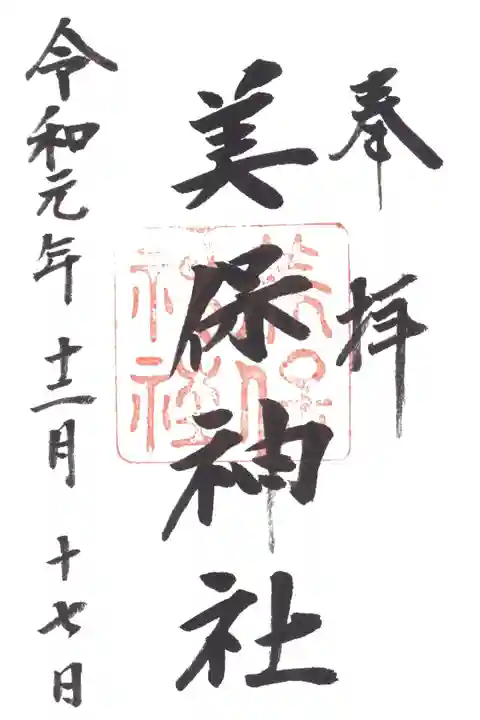 奉拝
美保神社
令和元年十二月十七日